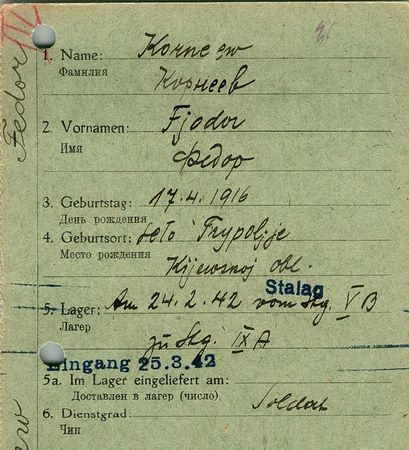 Fedor IV
1. Name: Korneew
Фамилия
Корнеев
2. Vornamen: Fjodor
Имя
Федор
3. Geburtstag: 17.4.1916
День рождения
4. Geburtsort: selo Trypoljje
Место рождения
Kijewskoj obl.
Stalag
5. Lager: Am 24.2.42 vom Stg. V B
Лагер
zu Stg. IX A
Eingang 25.3.42
5a. Im Lager eingeliefert am:
Доставлен в лагер (число)
Soldat
6. Dienstgrad:
Чин